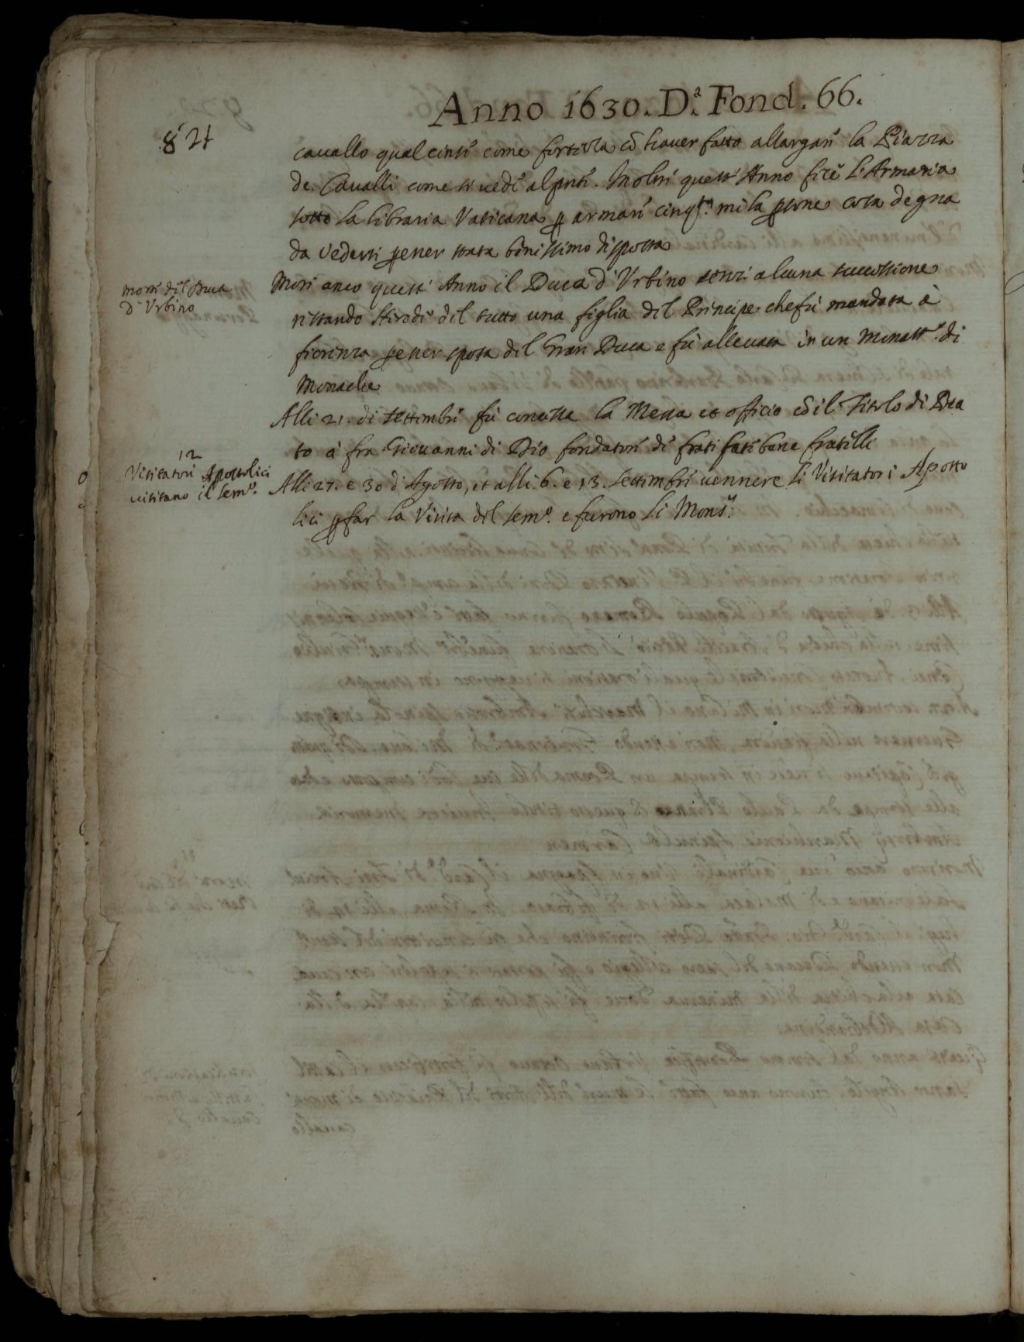 Anno 1630. D.ª Fond. 66.
824
cavallo qual cinse come fortezza cõ haver fatto allargare la Piazza
de Cavalli come si vede al pnte. Inoltre quest' Anno fece l'Armaria
sotto la libraria Vaticana p armare cinq.ta mila psone cosa degna
da vedersi p esser stata benissimo disposta
morte del Duca
d'Urbino
Morì anco quest' Anno il Duca d'Urbino senz' alcuna successione
restando herede del tutto una figlia del Principe che fù mandata à
fiorenza p esser sposa del Gran Duca e fù allevata in un Monast.º di
Monache
Alli 21. di settembre fù concessa la Messa et officio cõ il Titolo di Bea
to à fra Giovanni di Dio fondatore de frati fate bene fratelli
12
Visitatori Apostolici
visitano il sem.º
Alli 27. e 30 d'Agosto, et alli 6. e 13. Settembre vennere li Visitatori Aposto
lici p far la Visita del sem.º e furono li Mons.ri